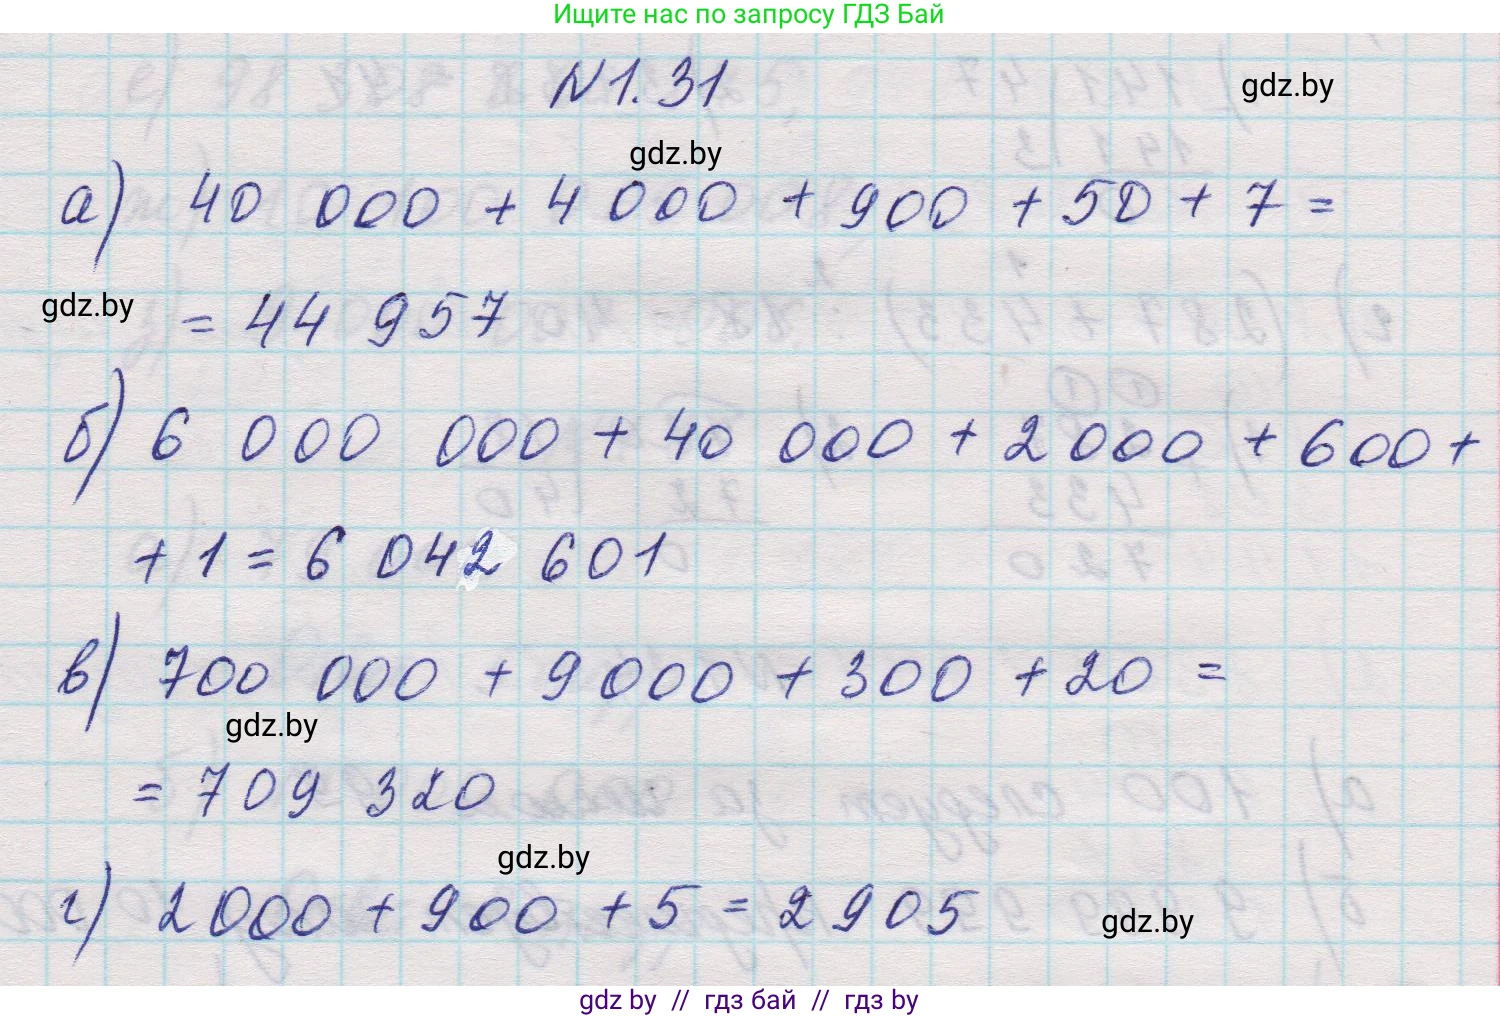 Ищите нас по запросу ГДЗ Бай
N 1.31
gdz.by
gdz.by
а) 40 000 + 4 000 + 900 + 50 + 7 =
gdz.by
= 44 957
б) 6 000 000 + 40 000 + 2 000 + 600 +
+ 1 = 6 042 601
в) 700 000 + 9 000 + 300 + 20 =
gdz.by
= 709 320
gdz.by
г) 2 000 + 900 + 5 = 2 905
gdz.by
gdz by // гдз бай // гдз by